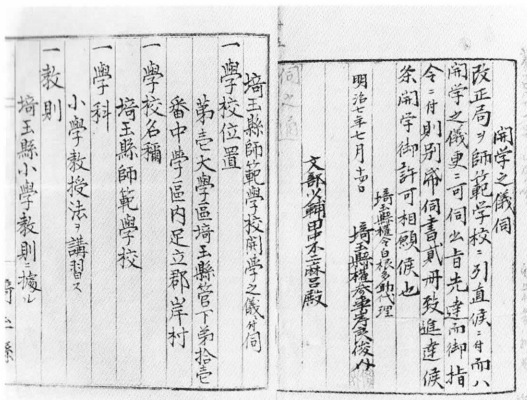 開学之儀伺
改正局ヲ師範学校ニ引直候ニ付而ハ
開学之儀更ニ可伺出旨先達而御指
令ニ付則別冊伺書貳冊致進達候
条開学御許可相願候也
埼玉縣権令白根多助代理
明治七年七月
埼玉縣
文部少輔田中不二麻呂殿
埼玉縣師範學校開學之儀ニ付伺
一學校位置
第壱大學區埼玉縣管下第拾壱
番中學區内足立郡岸村
一學校名稱
埼玉縣師範學校
一學科
小學教授法ヲ講習ス
一教則
埼玉縣小學教則據ル
埼玉縣